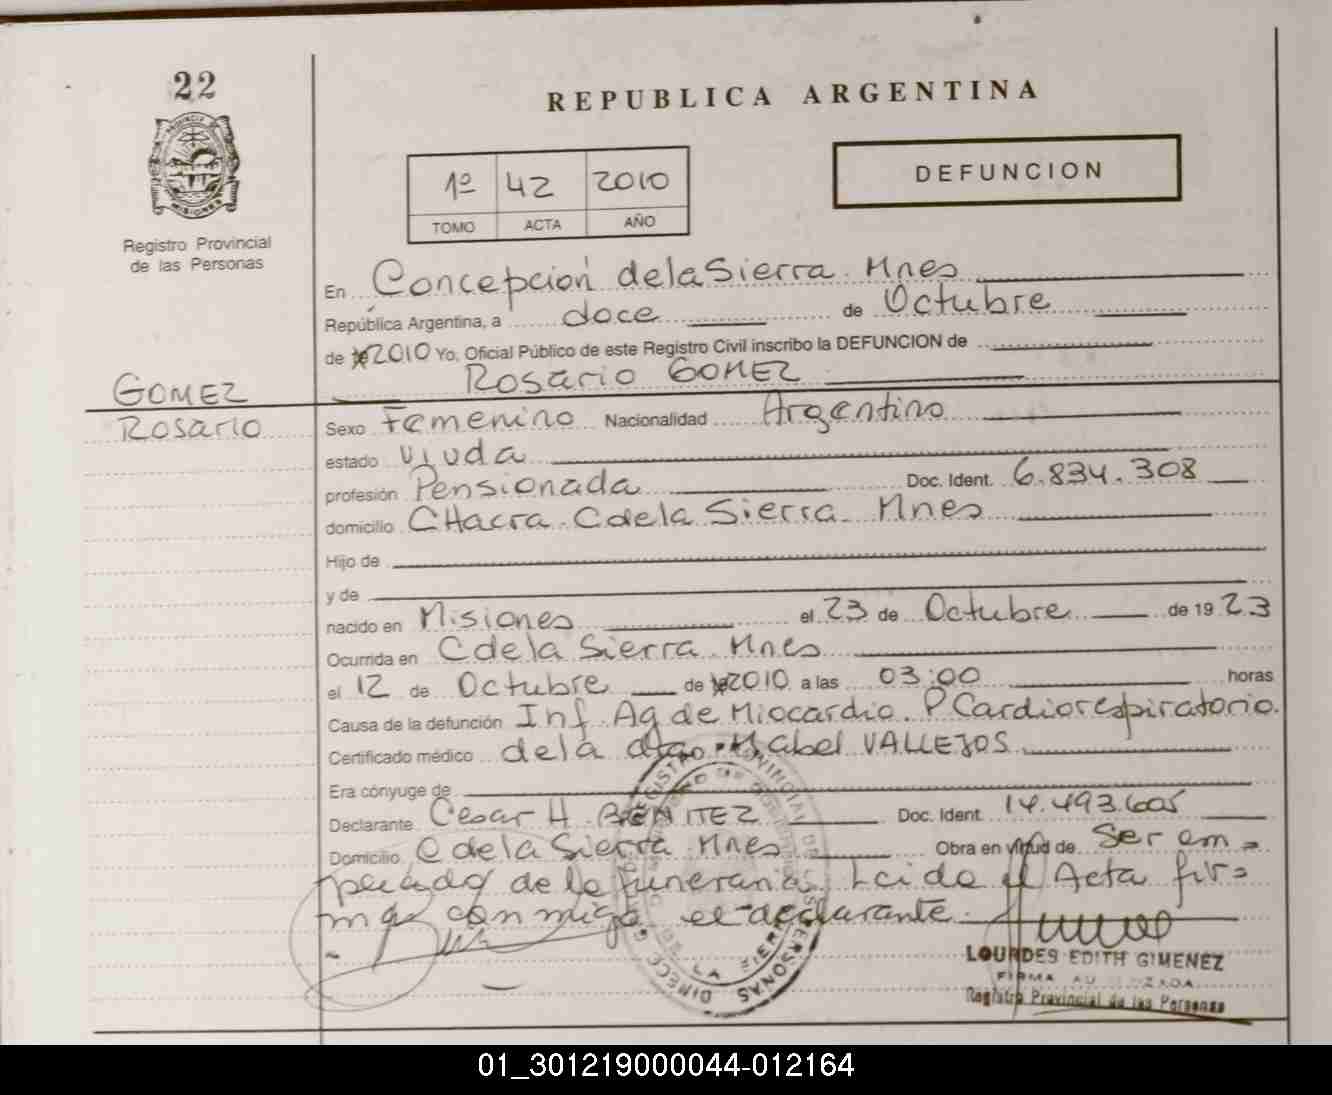 22
PROVINCIA DE
MISIONES
Registro Provincial
de las Personas
REPUBLICA ARGENTINA
1º 42 2010
TOMO ACTA AÑO
DEFUNCION
En Concepción de la Sierra. Mnes
República Argentina, a doce de Octubre
de 2010 Yo, Oficial Público de este Registro Civil inscribo la DEFUNCION de
Rosario GOMEZ
GOMEZ
Rosario
Sexo Femenino Nacionalidad Argentino
estado Viuda
profesión Pensionada Doc. Ident. 6.834.308
domicilio CHacra. C de la Sierra. Mnes
Hijo de
y de
nacido en Misiones el 23 de Octubre de 19 23
Ocurrida en C de la Sierra. Mnes
el 12 de Octubre de 2010 a las 03:00 horas
Causa de la defunción Inf. Ag de Miocardio. P Cardiorespiratorio.
Certificado médico de la dra. Isabel VALLEJOS
Era cónyuge de
Declarante Cesar H. BENITEZ Doc. Ident. 14.493.605
Domicilio C de la Sierra. Mnes Obra en virtud de Ser em=
peado de la funeraria. Leida el Acta fir=
ma conmigo el declarante.
LOURDES EDITH GIMENEZ
FIRMA AUTORIZADA
Registro Provincial de las Personas
01_301219000044-012164